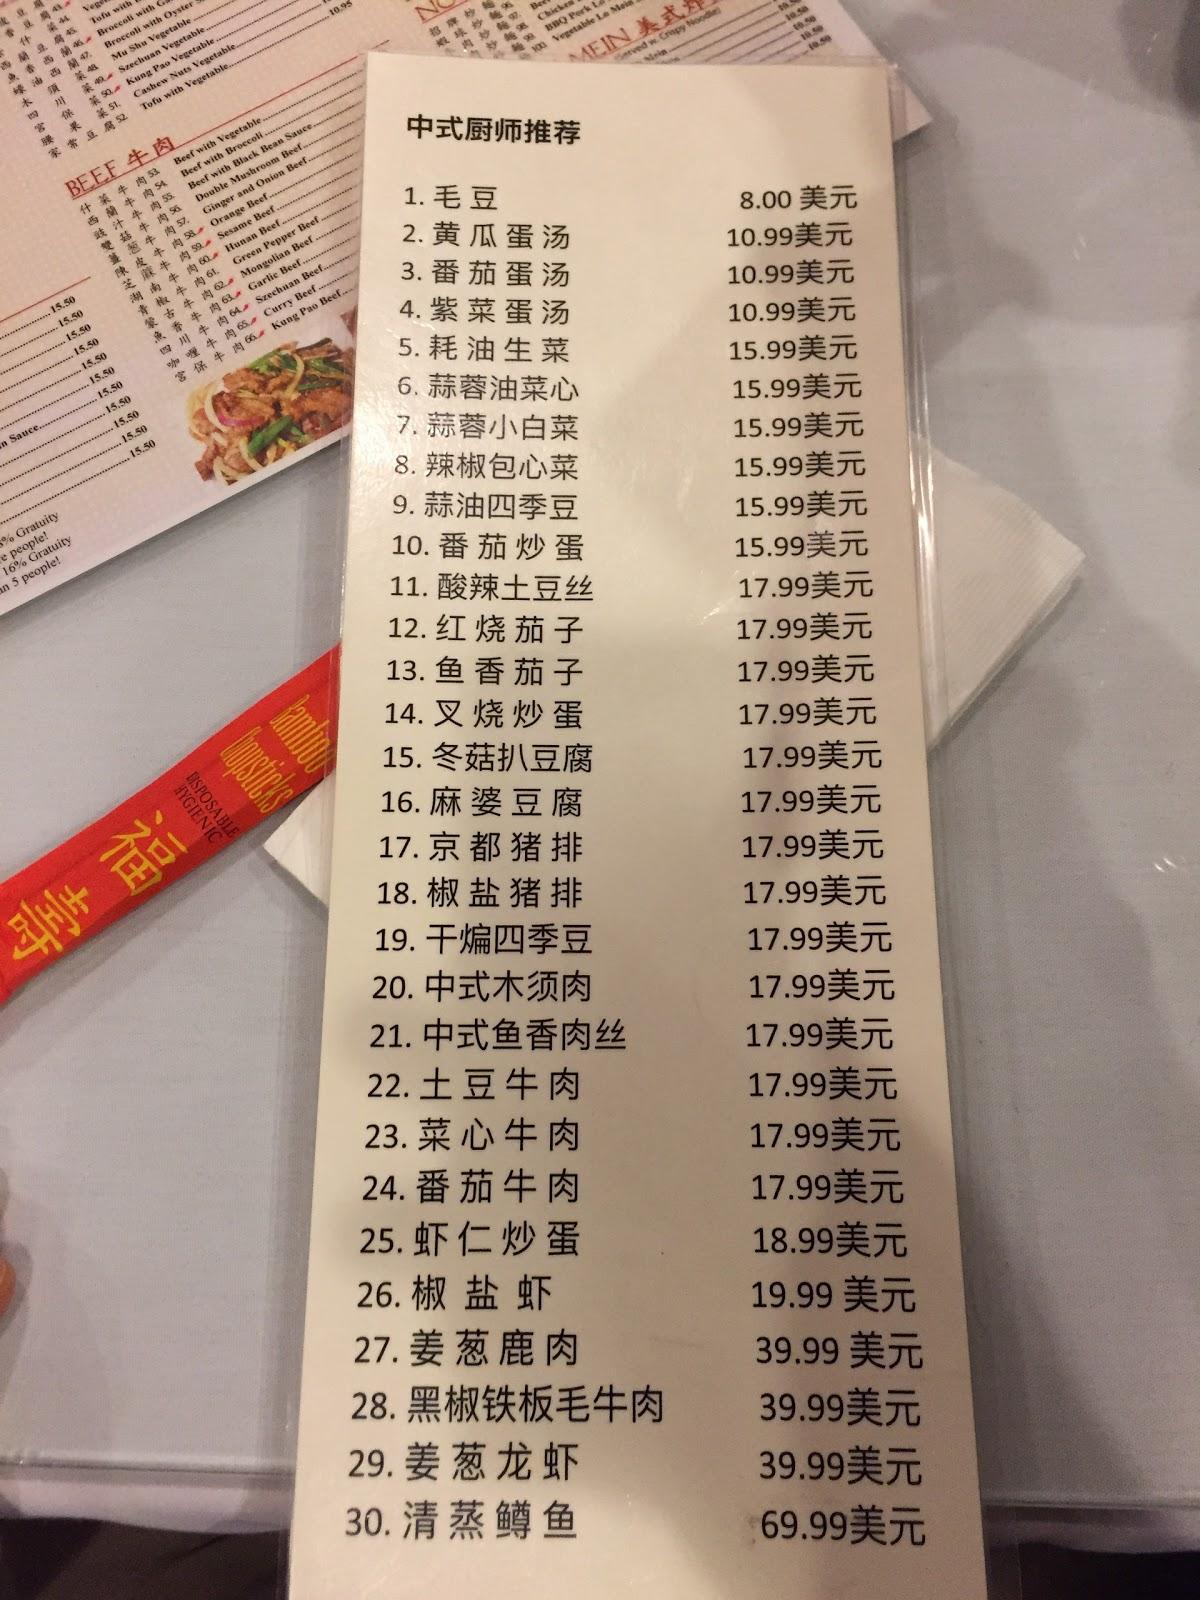 中式厨师推荐
1. 毛豆 8.00 美元
2. 黄瓜蛋汤 10.99美元
3. 番茄蛋汤 10.99美元
4. 紫菜蛋汤 10.99美元
5. 耗油生菜 15.99美元
6. 蒜蓉油菜心 15.99美元
7. 蒜蓉小白菜 15.99美元
8. 辣椒包心菜 15.99美元
9. 蒜油四季豆 15.99美元
10. 番茄炒蛋 15.99美元
11. 酸辣土豆丝 17.99美元
12. 红烧茄子 17.99美元
13. 鱼香茄子 17.99美元
14. 叉烧炒蛋 17.99美元
15. 冬菇扒豆腐 17.99美元
16. 麻婆豆腐 17.99美元
17. 京都猪排 17.99美元
18. 椒盐猪排 17.99美元
19. 干煸四季豆 17.99美元
20. 中式木须肉 17.99美元
21. 中式鱼香肉丝 17.99美元
22. 土豆牛肉 17.99美元
23. 菜心牛肉 17.99美元
24. 番茄牛肉 17.99美元
25. 虾仁炒蛋 18.99美元
26. 椒盐虾 19.99 美元
27. 姜葱鹿肉 39.99 美元
28. 黑椒铁板毛牛肉 39.99美元
29. 姜葱龙虾 39.99美元
30. 清蒸鳟鱼 69.99美元
Broccoli with Oyster
Mu Shu Vegetable
Szechuan Vegetable
Kung Pao Vegetable
Cashew Nuts Vegetable
Tofu with Vegetable
10.95
BEEF 牛肉
什菜牛肉 53. Beef with Vegetable
西蘭牛肉 54. Beef with Broccoli
豉汁牛肉 55. Beef with Black Bean Sauce
雙菇牛肉 56. Double Mushroom Beef
薑葱牛肉 57. Ginger and Onion Beef
陳皮牛肉 58. Orange Beef
芝麻牛肉 59. Sesame Beef
湖南牛肉 60. Hunan Beef
青椒牛肉 61. Green Pepper Beef
蒙古牛肉 62. Mongolian Beef
魚香牛肉 63. Garlic Beef
四川牛肉 64. Szechuan Beef
咖喱牛肉 65. Curry Beef
宮保牛肉 66. Kung Pao Beef
15.50
15.50
15.50
15.50
15.50
15.50
15.50
15.50
Sauce
% Gratuity
people!
16% Gratuity
5 people!
MEIN 美式
10.50
10.50
10.50
Bamboo
Chopsticks
DISPOSABLE
HYGIENIC
福壽